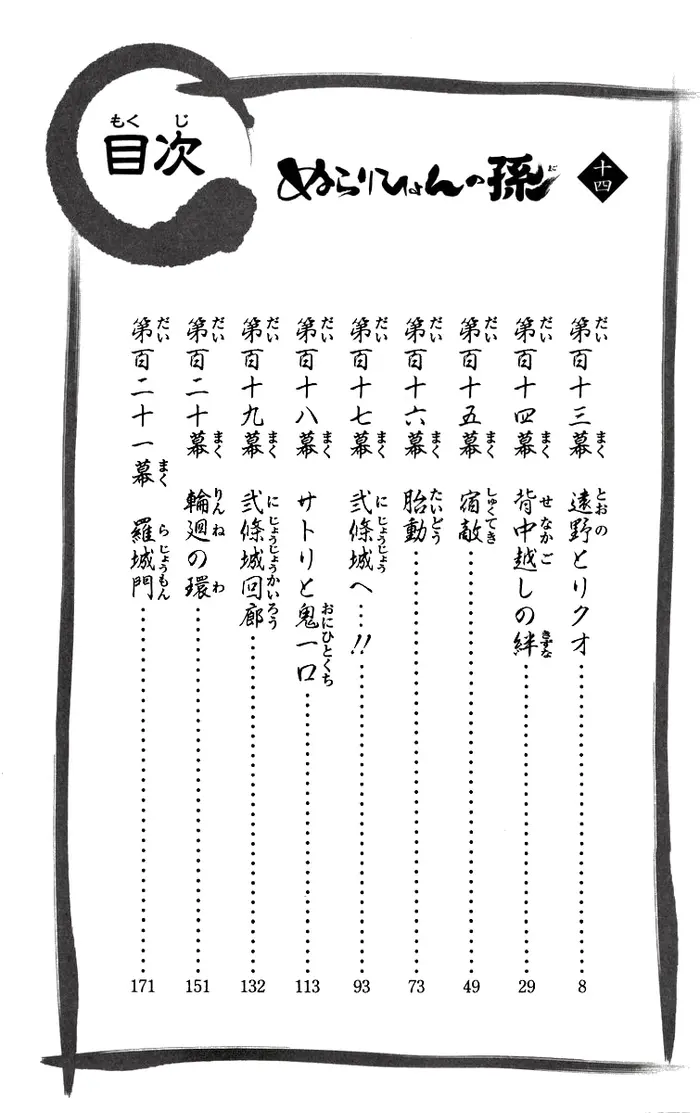 目次
もくじ
ぬらりひょんの孫
まご
十四
第百十三幕 遠野とリクオ 8
だい まく とおの
第百十四幕 背中越しの絆 29
だい まく せなかご きずな
第百十五幕 宿敵 49
だい まく しゅくてき
第百十六幕 胎動 73
だい まく たいどう
第百十七幕 弐條城へ…!! 93
だい まく にじょうじょう
第百十八幕 サトリと鬼一口 113
だい まく おにひとくち
第百十九幕 弐條城回廊 132
だい まく にじょうじょうかいろう
第百二十幕 輪廻の環 151
だい まく りんね わ
第百二十一幕 羅城門 171
だい まく らじょうもん